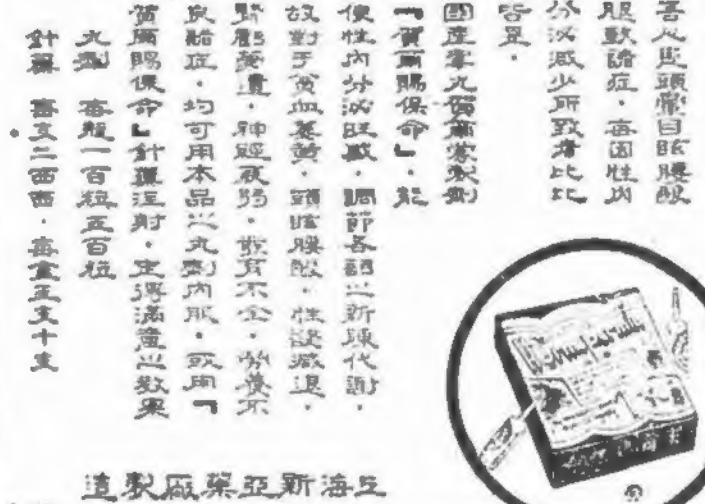 人患頭暈目眩腰酸
腿軟諸症．每因性內
分泌減少所致者比比
皆是．
國產睾丸賀爾蒙製劑
「賀爾賜保命」．能
使性內分泌旺盛．調節各部之新陳代謝．
故對于貧血萎黃．頭眩腰酸．性慾減退．
腎虧夢遺．神經衰弱．發育不全．營養不
良諸症．均可用本品之丸劑內服．或用「
賀爾賜保命」針藥注射．定得滿意之效果
丸劑　每瓶一百粒五百粒
針藥　每支二西西．每盒五支十支
上海新亞藥廠製造